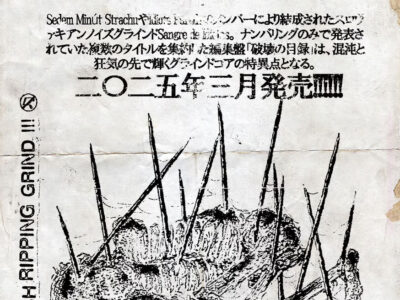 Sedem Minút Strachuや メンバーにより結成されたスロヴ
ァキアンノイズグラインドSangre de 。ナンバリングのみで発表さ
れていた複数のタイトルを集約した編集盤「破壊の目録」は、混沌と
狂気の先で輝くグラインドコアの特異点となる。
二〇二五年三月発売!!!!!!
H RIPPING GRIND !!! Ⓡ